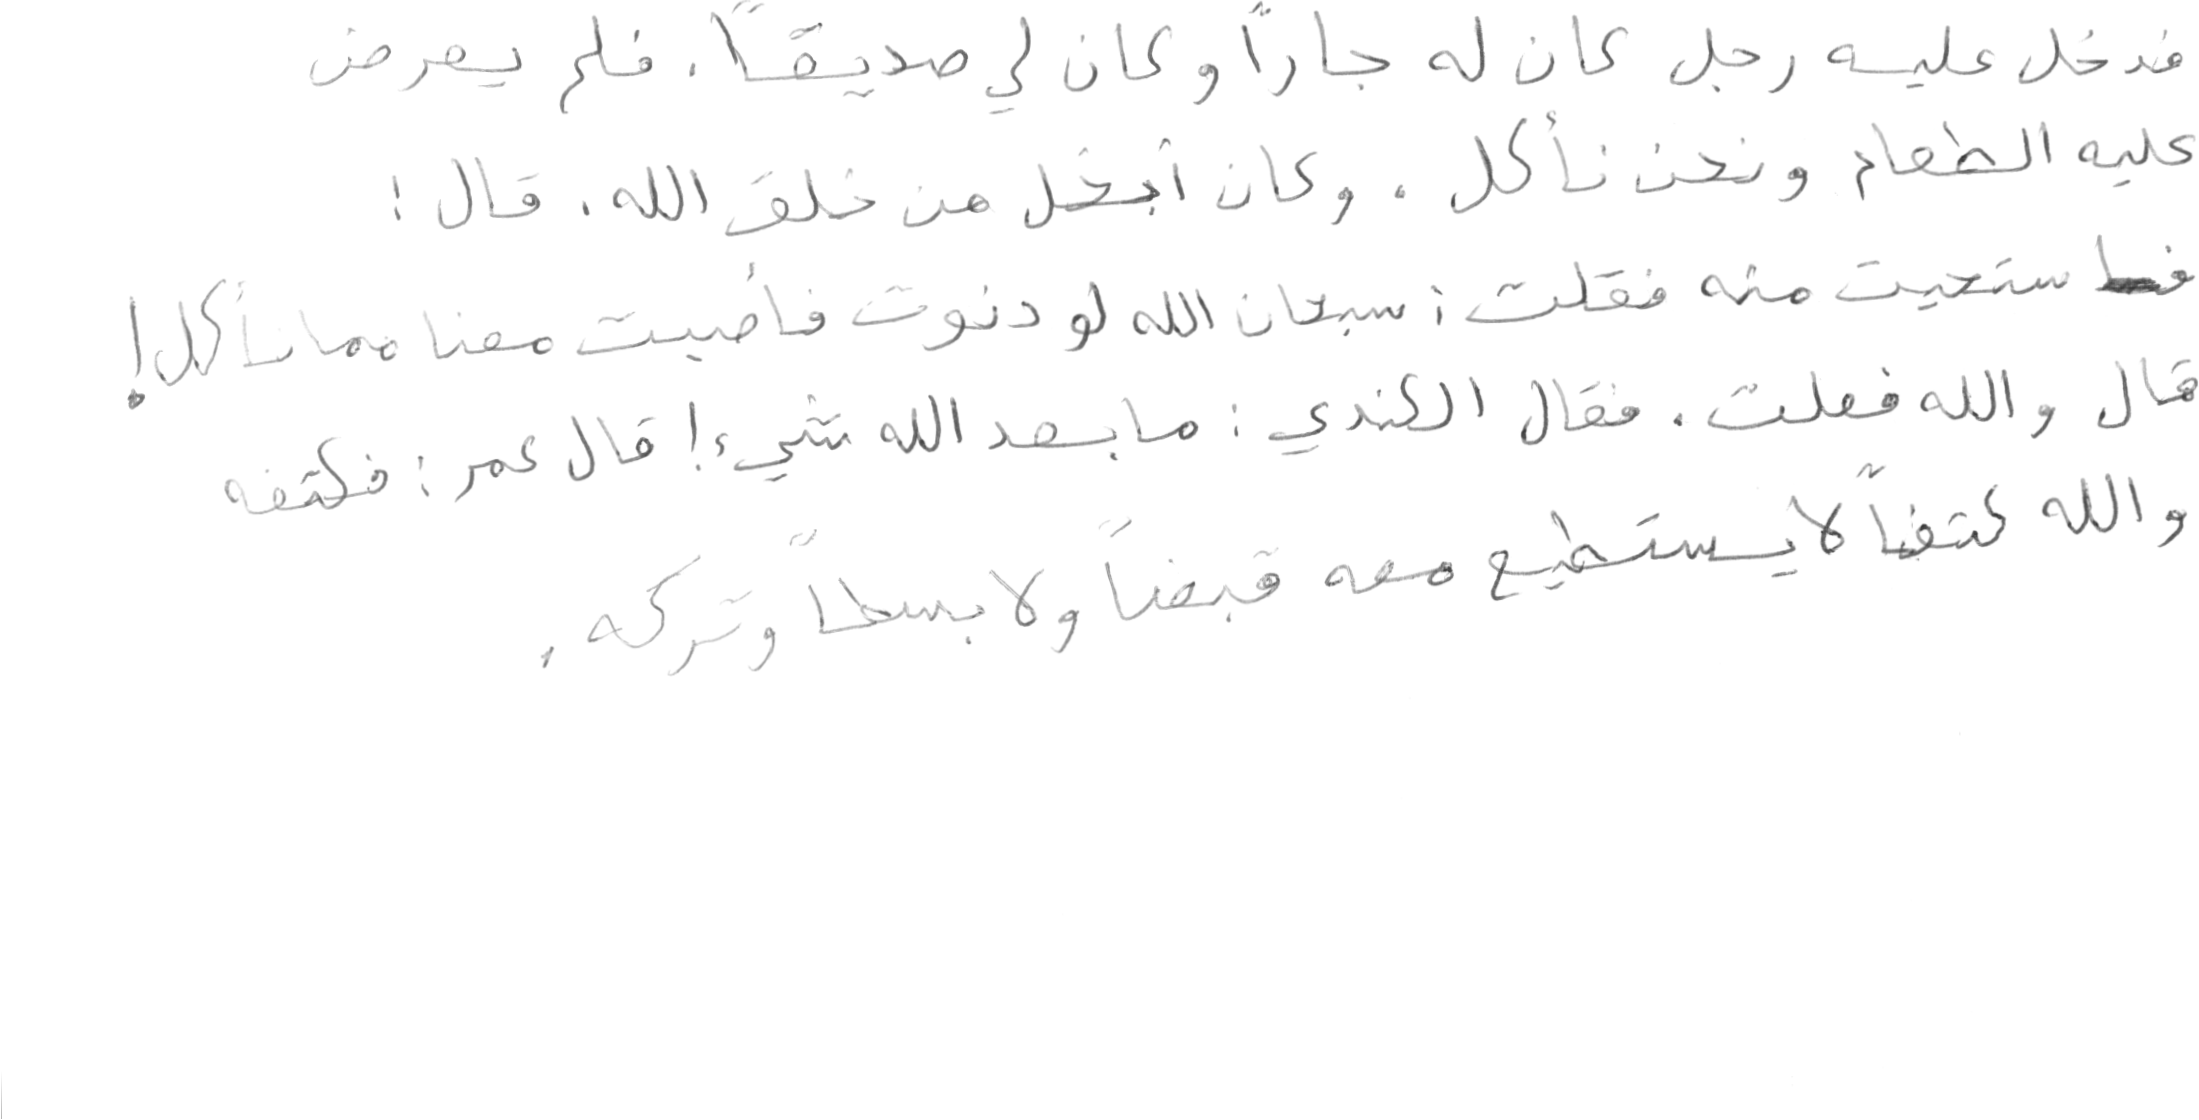 فدخل عليه رجل كان له جاراً وكان لي صديقاً. فلم يعرض
عليه الطعام ونحن نأكل. وكان أبخل من خلق الله. قال:
فاستحيت منه فقلت: سبحان الله لو دنوت فأصبت معنا مما نأكل!
قال والله فعلت. فقال الكندي: ما بعد الله شيء! قال عمر: فكتفه
والله كتفاً لا يستطيع معه قبضاً ولا بسطاً وتركه.